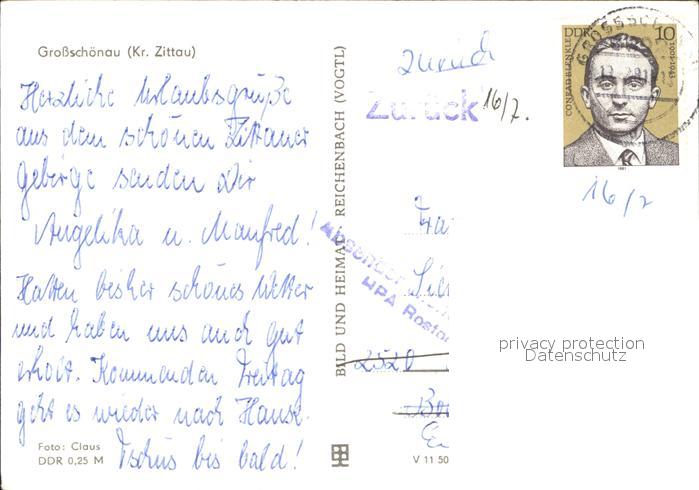 Großschönau (Kr. Zittau)
Herzliche Urlaubsgrüße
aus dem schönen Zittauer
Gebirge senden Dir
Angelika u. Manfred!
Hatten bisher schönes Wetter
und haben uns auch gut
erholt. Kommenden Freitag
geht es wieder nach Hause.
Tschüs bis bald!
Foto: Claus
DDR 0,25 M
BILD UND HEIMAT REICHENBACH (VOGTL)
V 11 50
zurück
Zurück
16/7.
DDR 10
CONRAD BLENKLE
1901-1943
1981
16/7
Absender
HPA Rostoc
2520
privacy protection
Datenschutz